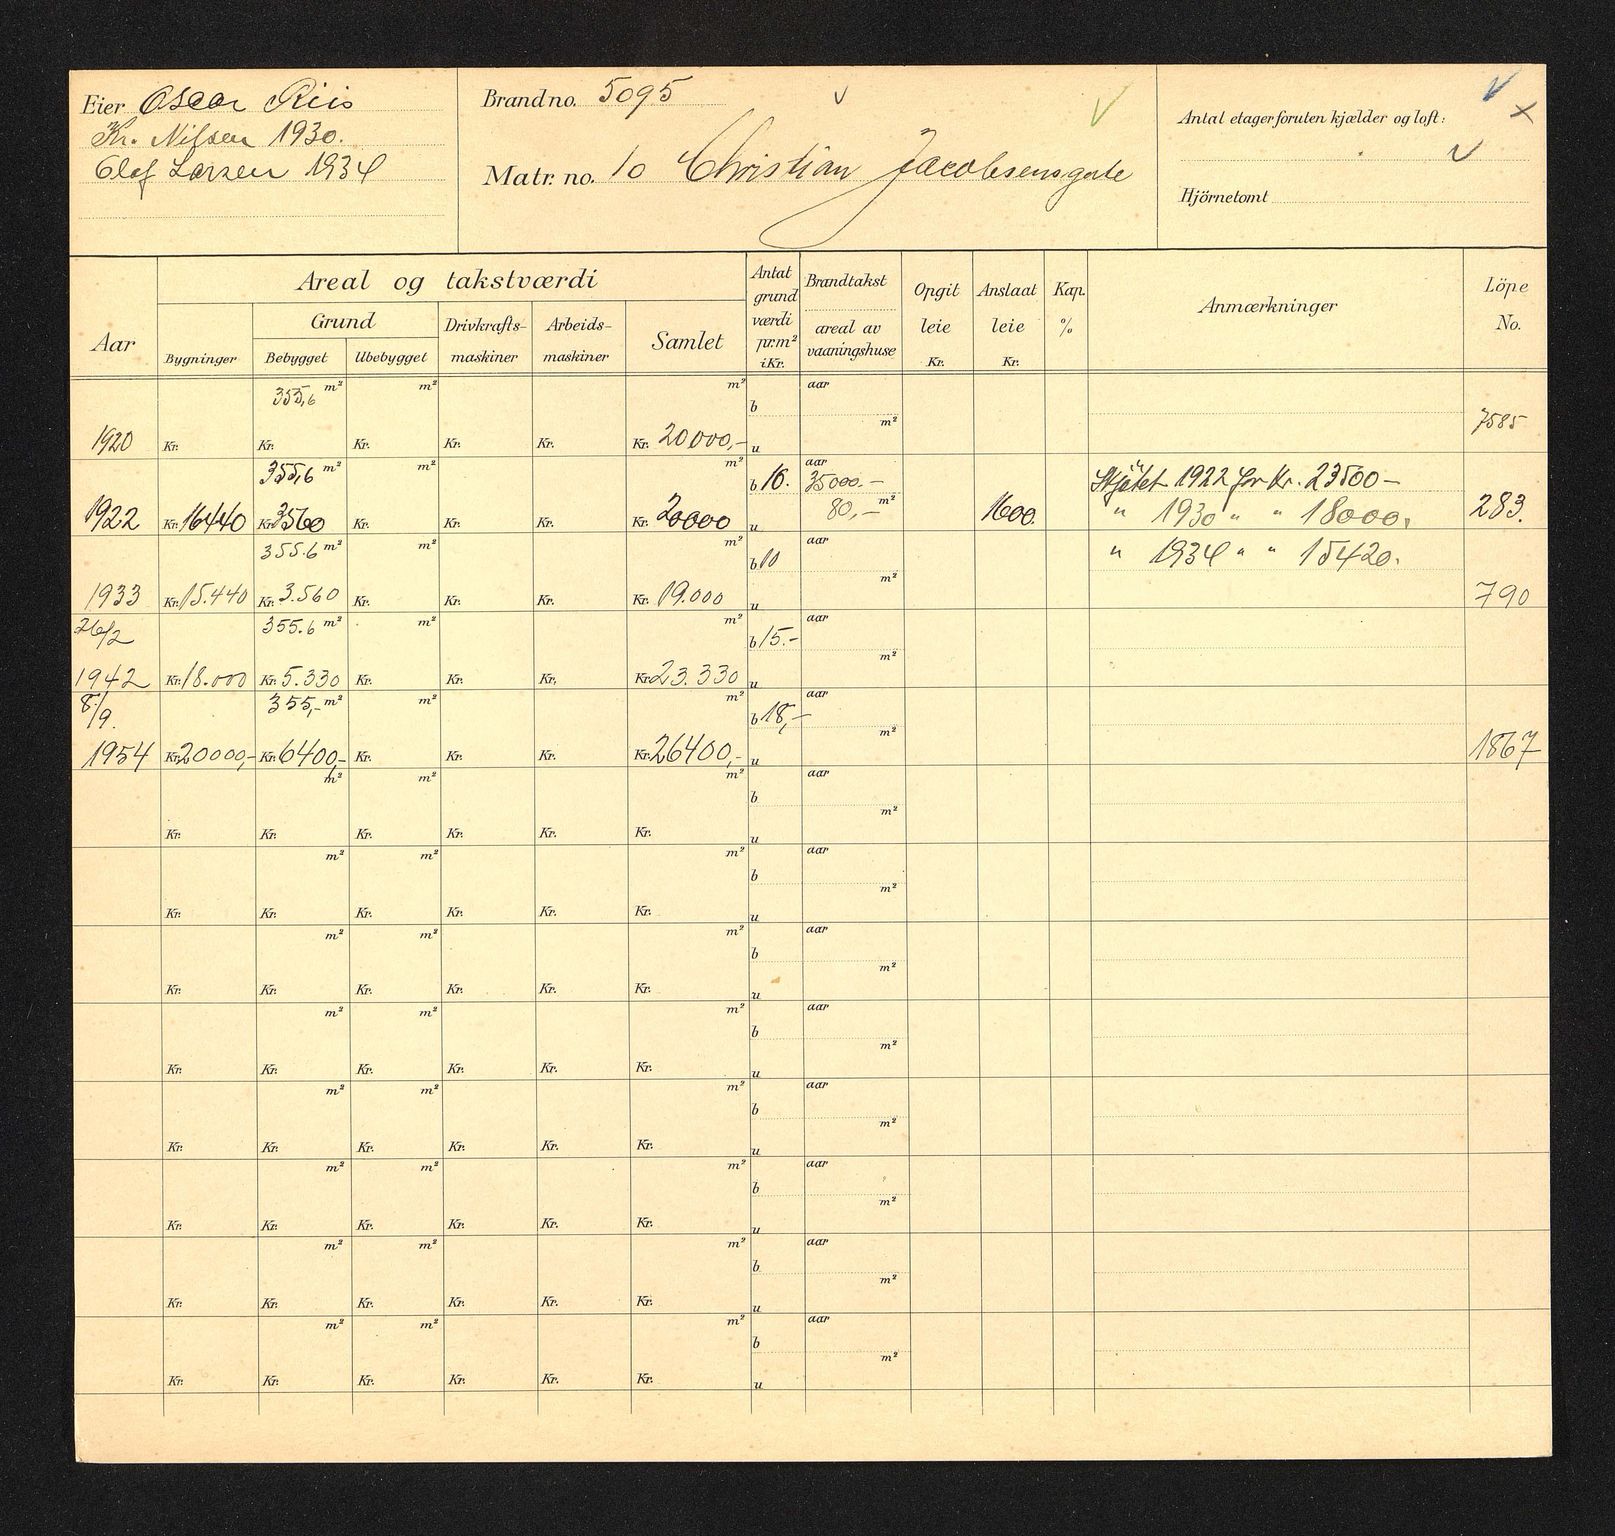 Eier Oscar Riis
Kr. Nilsen 1930.
Olaf Larsen 1934
Brandno. 5095
Matr. no. 10 Christian Jacobsensgate
Antal etager foruten kjælder og loft:
Hjörnetomt
Aar
Areal og takstværdi
Bygninger
Grund
Bebygget
Ubebygget
Drivkrafts-
maskiner
Arbeids-
maskiner
Samlet
Antat
grund
værdi
pr. m²
i Kr.
Brandtakst
areal av
vaaningshuse
Opgit
leie
Kr.
Anslaat
leie
Kr.
Kap.
%
Anmærkninger
Löpe
No.
355,6 m² m² m² aar
b
m² 7585
1920 Kr. Kr. Kr. Kr. Kr. Kr. 20000,- u
355,6 m² m² m² aar
b 10. 35000.- Skjötet 1922 for Kr. 23500-
80,- m²
1922 Kr. 16440 Kr. 3560 Kr. Kr. Kr. Kr. 20000 u 1600. " 1930 " " 18000, 283.
355.6 m² m² m² aar " 1934 " " 15420.
b 10
m²
1933 Kr. 15.440 Kr. 3.560 Kr. Kr. Kr. Kr. 19.000 u 790
26/2 355.6 m² m² m² aar
b 15.-
m²
1942 Kr. 18.000 Kr. 5.330 Kr. Kr. Kr. Kr. 23.330 u
8/9. 355,- m² m² m² aar
b 18,-
m²
1954 Kr. 20000,- Kr. 6400,- Kr. Kr. Kr. Kr. 26400,- u 1867
m² m² m² aar
b
m²
Kr. Kr. Kr. Kr. Kr. Kr. u
m² m² m² aar
b
m²
Kr. Kr. Kr. Kr. Kr. Kr. u
m² m² m² aar
b
m²
Kr. Kr. Kr. Kr. Kr. Kr. u
m² m² m² aar
b
m²
Kr. Kr. Kr. Kr. Kr. Kr. u
m² m² m² aar
b
m²
Kr. Kr. Kr. Kr. Kr. Kr. u
m² m² m² aar
b
m²
Kr. Kr. Kr. Kr. Kr. Kr. u
m² m² m² aar
b
m²
Kr. Kr. Kr. Kr. Kr. Kr. u
m² m² m² aar
b
m²
Kr. Kr. Kr. Kr. Kr. Kr. u